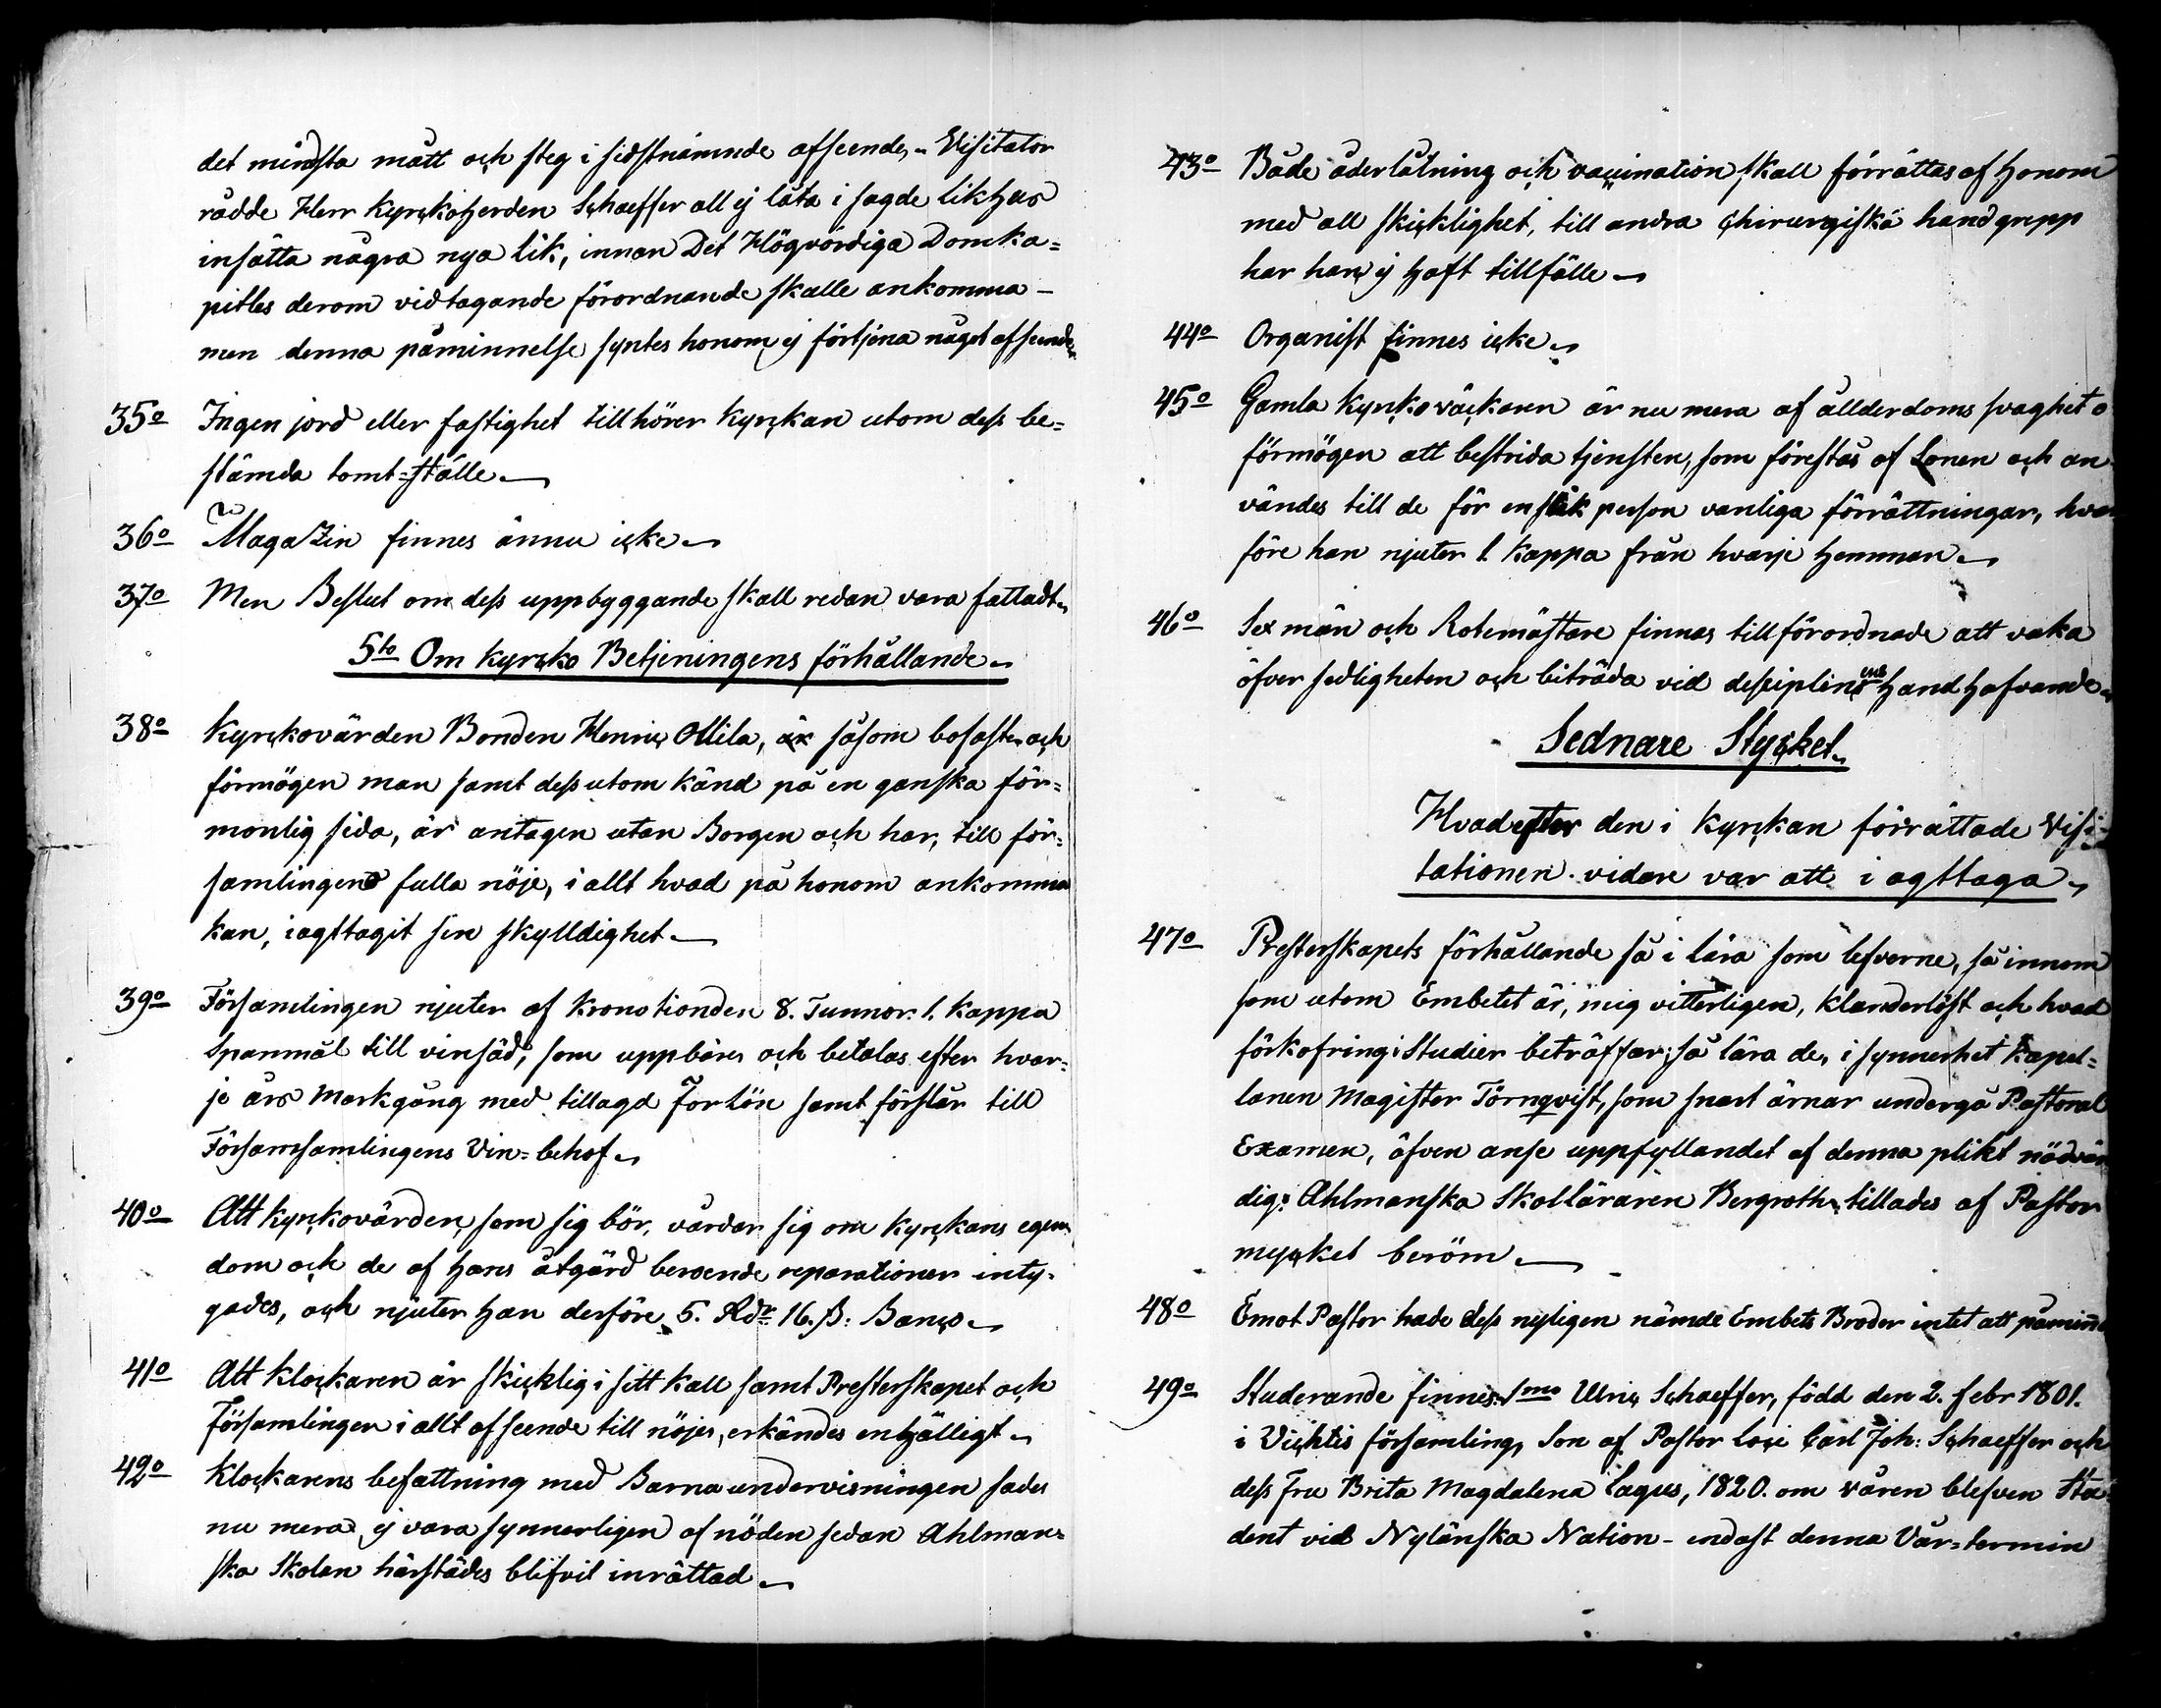 det minsta mått och steg i sidstnämnde afseende. Visitator
rådde Herr Kyrckoherden Schaeffer att ej låta i sagde likhus
insätta några nya lik, innan Det Högvördiga Domka=
pitlets derom vidtagande förordnande skulle ankomma -
men denna påminnelse syntes honom ej förtjena något afseende.
35o Ingen jord eller fastighet tillhörer Kyrckan utom dess be=
stämda tomt=ställe.
36o Magazin finnes ännu icke.
37o Men Beslut om dess uppbyggande skall redan vara fattadt.
5to Om Kyrcko Betjeningens förhållande.
38o Kyrckovärden Bonden Henric Ollila, är såsom bofast och
förmögen man samt dessutom känd på en ganska för=
monlig sida, är antagen utan Borgen och har, till för=
samlingens fulla nöje, i allt hvad på honom ankomma
kan, iagttagit sin skylldighet.
39o Församlingen njuter af Kronotionden 8. Tunnor 1. Kappa
Spanmål till vinsäd, som uppbäres och betalas efter hvar=
je års Markgång med tillagd Forlön samt förslår till
Församsamlingens Vin=behof.
40o Att Kyrckovärden, som sig bör, vårdar sig om Kyrckans egen
dom och de af hans åtgärd beroende reparationer inty=
gades, och njuter han derföre 5. Rdr 16. ß: Banco.
41o Att Klockaren är skicklig i sitt kall samt Presterskapet och
Församlingen i allt afseende till nöjes, erkändes enhälligt.
42o Klockarens befattning med Barnaundervisningen sades
nu mera ej vara synnerligen af nöden sedan Ahlman=
ska Skolan härstädes blifvit inrättad.
43o Både åderlåtning och vaccination skall förrättas af honom
med all skicklighet, till andra chirurgiska handgrepp
har han ej haft tillfälle.
44o Organist finnes icke.
45o Gamla Kyrkoväckaren är nu mera af ållderdoms svaghet o
förmögen att bestrida tjensten, som förestås af Sonen och an
vändes till de för en slik person vanliga förrättningar, hvar
före han njuter 1. Kappa från hvarje hemman.
46o Sexmän och Rotemästare finnas till förordnade att vaka
öfver sedligheten och biträda vid dessciplinens handhafvande.
Sednare Stycket.
Hvad efter den i Kyrckan förrättade Visi=
tationen vidare var att i agttaga.
47o Presterskapets förhållande så i lära som lefverne, så innom
som utom Embetet är, mig vitterligen, klanderlöst och hvad
förkofring i Studier beträffar, så lära de, i synnerhet Kapel=
lanen Magister Törnqvist, som snart ärnar undergå Pastoral
Examen, äfven anse uppfyllandet af denna plikt nödvän
dig. Ahlmanska Skolläraren Bergroth tillades af Pastor
mycket beröm.
48o Emot Pastor hade dess nyligen nämde Embets Broder intet att påminna
49o Studerande finnes: 1mo Ulric Schaeffer, född den 2. febr 1801.
i Vichtis församling, Son af Pastor Loci Carl Joh: Schaeffer och
dess Fru Brita Magdalena Lagus, 1820. om våren blefven Stu
dent vid Nylänska Nation - endast denna Vår=termin